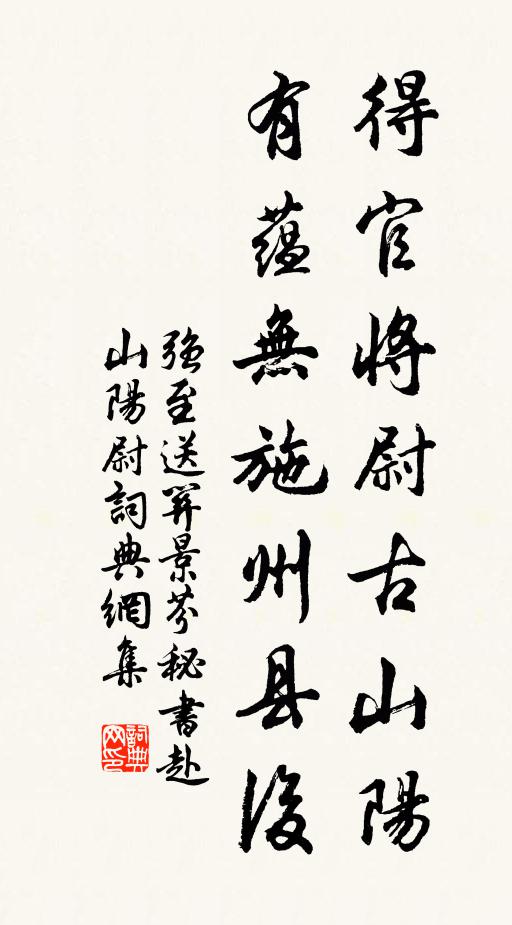 得官将尉古山陽
有蘊無施州县後
強至送關景芬秘書赴
山陽尉詞典網集
詞典
网印